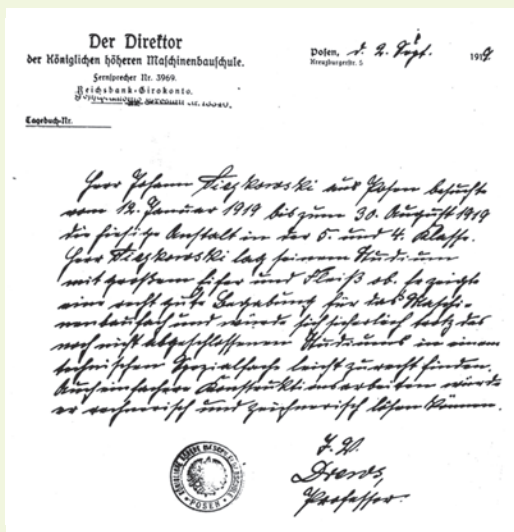 Der Direktor
der Königlichen höheren Maschinenbauschule.
Fernsprecher Nr. 3969.
Reichsbank-Girokonto.
Tagebuch-Nr.
Posen, d. 2. Sept. 1919.
Kreuzburgerstr. 5
Herr Johann Cieszkowski aus Posen besuchte
vom 12. Januar 1919 bis zum 30. August 1919
die hiesige Anstalt in der 5. und 4. Klasse.
Herr Cieszkowski lag seinem Studium
mit großem Eifer und Fleiß ob. Er zeigte
eine recht gute Begabung für das Maschi-
nenbaufach und würde sich sicherlich trotz des
noch nicht abgeschlossenen Studiums in einem
technischen Spezialfache leicht zurecht finden.
Auch einfachere Konstruktionsarbeiten würde
er rechnerisch und zeichnerisch lösen können.
J. V.
Drews,
Professor.
POSEN